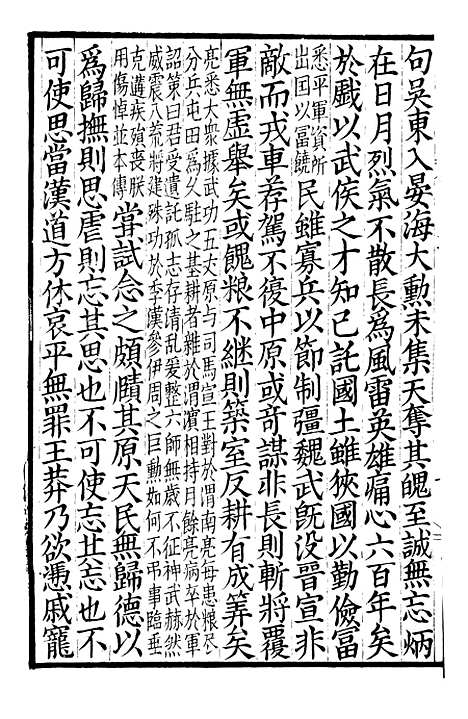 句吴東入晏海大勲未集天奪其魄至誠無忘炳
在日月烈氣不散長爲風雷英雄痛心六百年矣
於戲以武侯之才知己託國土雖狹國以勤儉冨
悉平軍資所
出国以冨饒
民雖寡兵以節制彊魏武旣没晉宣非
敵而戎車荐駕不復中原或奇謀非長則斬將覆
軍無虛舉矣或餽粮不継則築室反耕有成筭矣
亮悉大衆據武功五丈原与司馬宣王對於渭南亮每患粮尽
分兵屯田爲久駐之基耕者雜於渭濵相持月餘亮病卒於軍
詔策曰君受遺託孤志存清乱爰整六師無歳不征神武赫然
威震八荒將建殊功於季漢參伊周之巨勲如何不弔事臨垂
克遘疾殞喪朕
用傷悼並本傳
嘗試念之頗賾其原天民無歸德以
爲歸撫則思虐則忘其思也不可使忘其志也不
可使思當漢道方休哀平無罪王莽乃欲慿戚寵